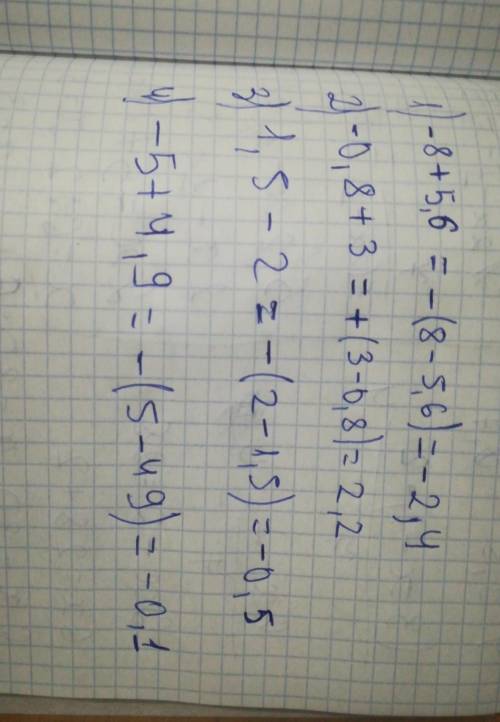 1) -8+5,6 = -(8-5,6)=-2,4
2) -0,8+3 = +(3-0,8)=2,2
3) 1,5-2 = -(2-1,5)=-0,5
4) -5+4,9 = -(5-4 9)=-0,1